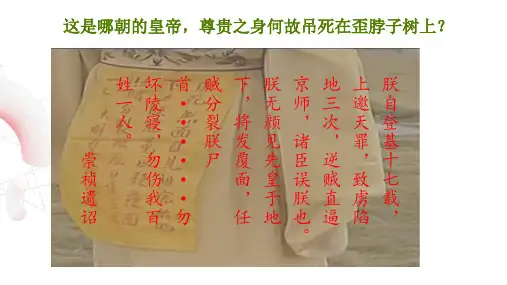 这是哪朝的皇帝，尊贵之身何故吊死在歪脖子树上？
朕自登基十七载，
上邀天罪，致虏陷
地三次，逆贼直逼
京师，诸臣误朕也。
朕无颜见先皇于地
下，将发覆面，任
贼分裂朕尸
首·······勿
坏陵寝，勿伤我百
姓一人。
崇祯遗诏